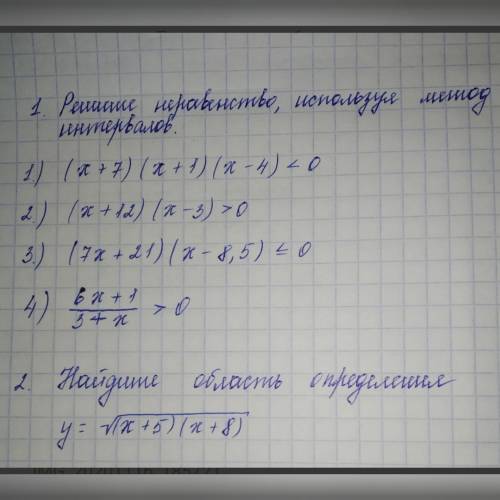 1. Решите неравенство, используя метод
интервалов.
1.) (x+7)(x+1)(x-4)<0
2.) (x+12)(x-3)>0
3.) (7x+21)(x-8,5)≤0
4) \frac{6x+1}{3+x} > 0
2. Найдите область определения
y = √(x+5)(x+8)